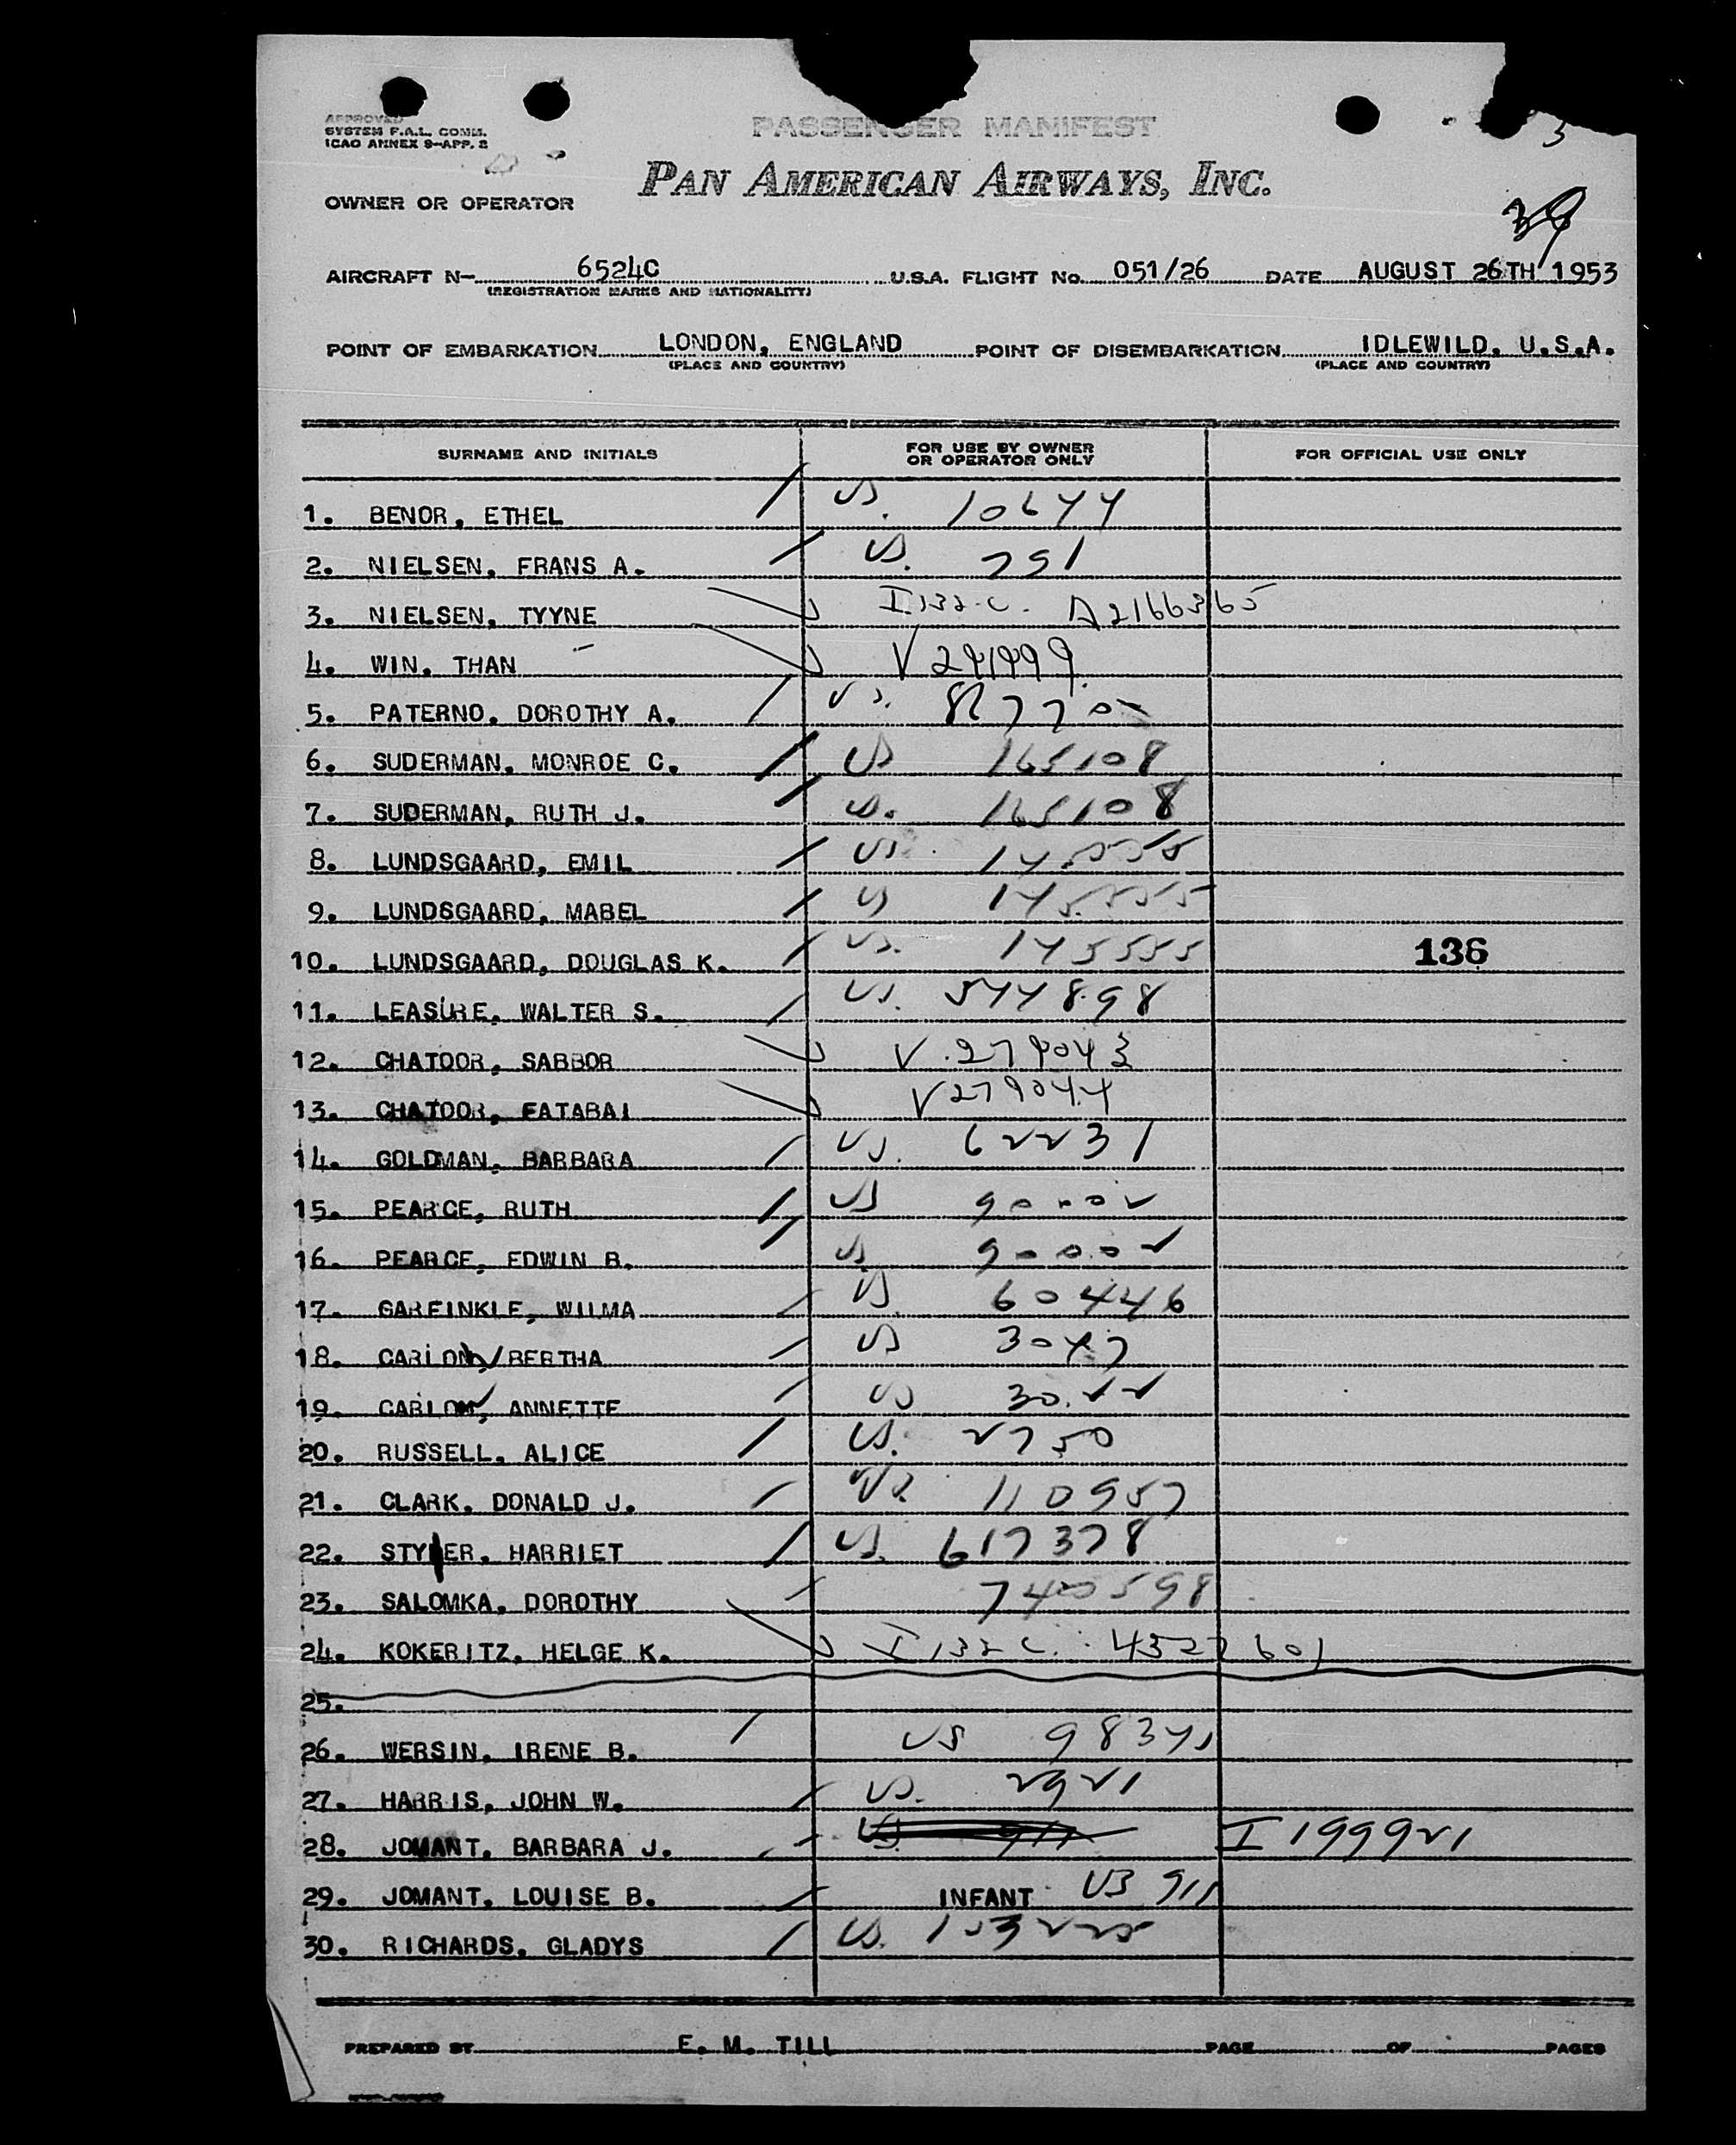 APPROVED
SYSTEM F.A.L. COMM.
ICAO ANNEX 9-APP. 2
PASSENGER MANIFEST
3
PAN AMERICAN AIRWAYS, INC.
OWNER OR OPERATOR
39
AIRCRAFT N- 6524C U.S.A. FLIGHT No. 051/26 DATE AUGUST 26TH 1953
(REGISTRATION MARKS AND NATIONALITY)
POINT OF EMBARKATION LONDON, ENGLAND POINT OF DISEMBARKATION IDLEWILD, U.S.A.
(PLACE AND COUNTRY) (PLACE AND COUNTRY)
SURNAME AND INITIALS FOR USE BY OWNER OR OPERATOR ONLY FOR OFFICIAL USE ONLY
1. BENOR, ETHEL US. 10644
2. NIELSEN, FRANS A. US. 791
3. NIELSEN, TYYNE I.132.C. A2166365
4. WIN, THAN V
5. PATERNO, DOROTHY A. US.
6. SUDERMAN, MONROE C. US 165108
7. SUDERMAN, RUTH J. US. 165108
8. LUNDSGAARD, EMIL US. 145555
9. LUNDSGAARD, MABEL US 145555
10. LUNDSGAARD, DOUGLAS K. US. 145555 136
11. LEASURE, WALTER S. US. 544898
12. CHATOOR, SABBOR V.279043
13. CHATOOR, FATABAI V279044
14. GOLDMAN, BARBARA US. 62231
15. PEARCE, RUTH US 90002
16. PEARCE, EDWIN B. US 90002
17. GARFINKLE, WILMA US 60446
18. CARLOW, BERTHA US 3047
19. CARLOW, ANNETTE US 3022
20. RUSSELL, ALICE US. 2750
21. CLARK, DONALD J. US 110957
22. STYLER, HARRIET US. 617378
23. SALOMKA, DOROTHY 740598
24. KOKERITZ, HELGE K. I 132 C. 4527601
25.
26. WERSIN, IRENE B. US 98341
27. HARRIS, JOHN W. US. 2921
28. JOMANT, BARBARA J. US. 911 I 199921
29. JOMANT, LOUISE B. INFANT US 911
30. RICHARDS, GLADYS US. 153225
PREPARED BY E. M. TILL PAGE OF PAGES